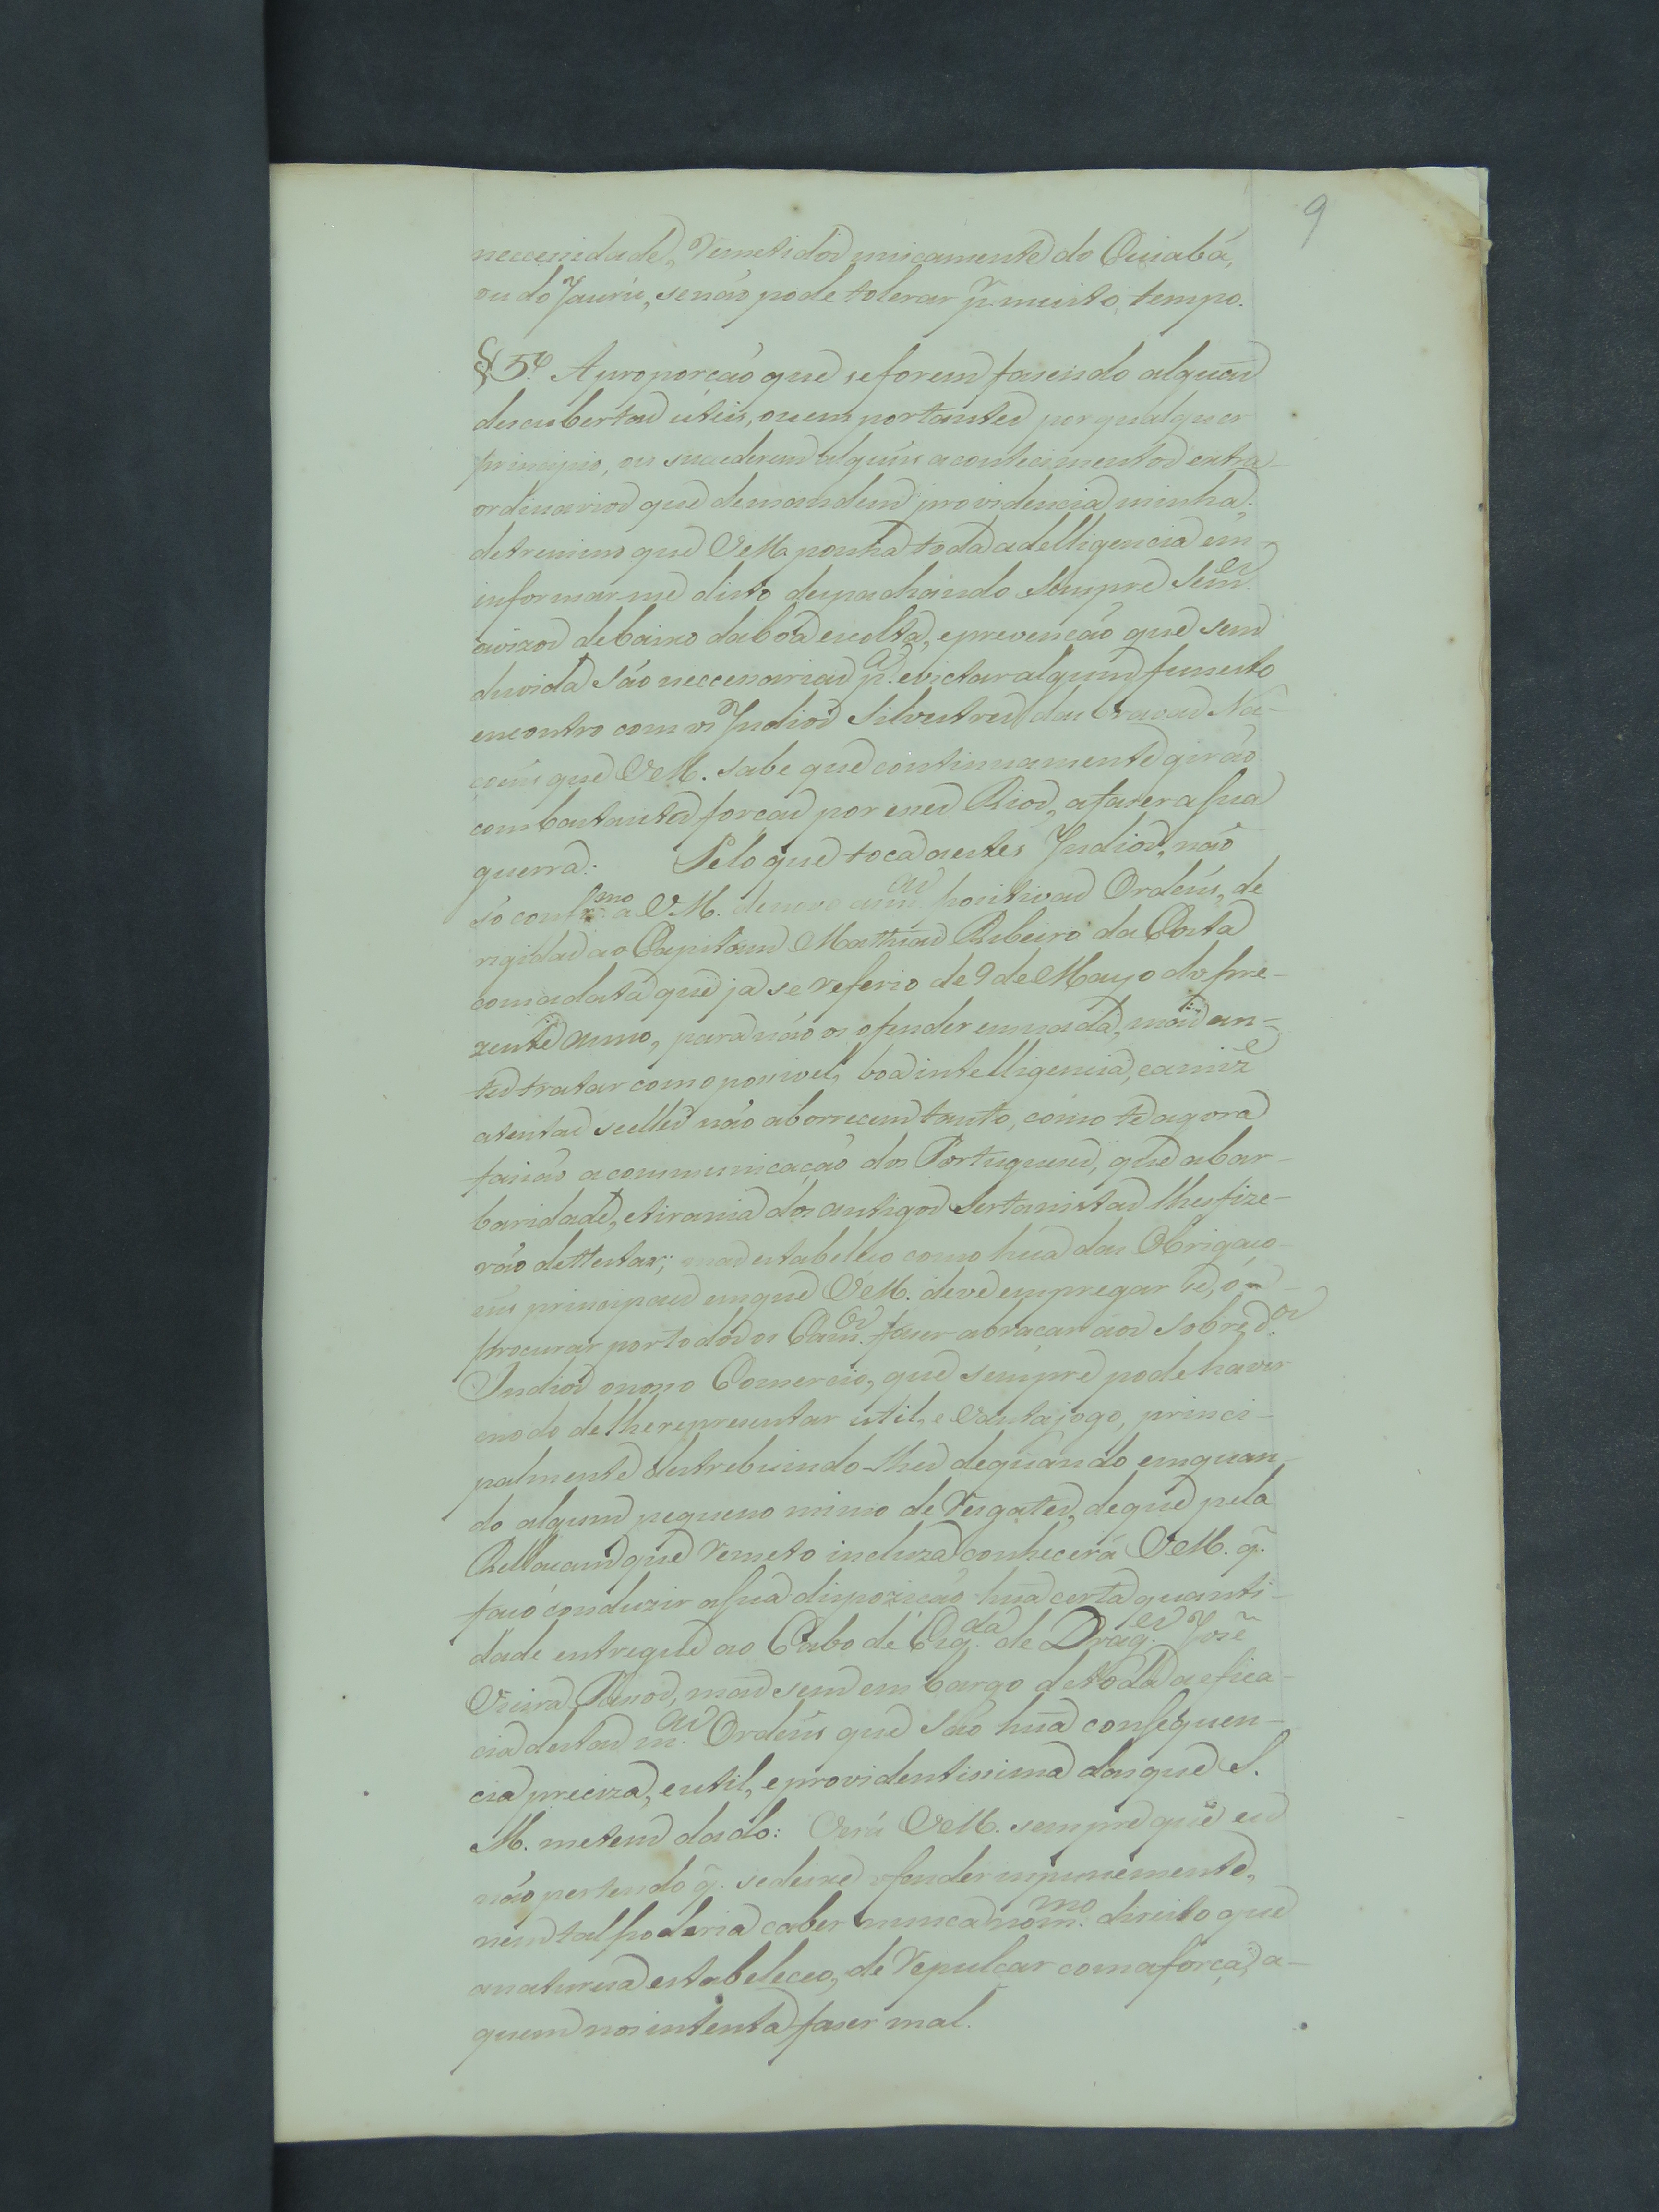 9
necessidade, remetidos unicamente do Cuiabá,
ou do Jaurú, se não pode tolerar p.r muito tempo.
§ 5.º A proporção que se forem fasendo alguãs
descubertas úteis, ou emportantes por qualquer
principio, ou sucederem alguns acontecimentos extra-
ordinarios que demandem providencia minha,
detremino que VM. ponha toda a delligencia em
informar-me disto despachando sempre sem.es
avizos debaixo da boa escolta, e prevenção que sem
duvida são neccesarias p.a evictar algum funesto
encontro com os Indios Silvestres das bravas Na-
çoins que VM. sabe que continuamente girão
com bastantes forças por esses Rios, a faser a sua
guerra. Pelo que toca a estes Indios, não
só confr.mo a VM. de novo as m.as positivas Ordens, de
rigidas ao Capitam Mathias Ribeiro da Costa
com a data que já se referio de 9 de Mayo do pre-
zente anno, para não os ofender em nada, mais an-
tes tratar com o possivel, boa intelligencia, e amiz.e
a estas se elles não aborrecem tanto, como té agora
fasião a communicação dos Portugueses, que a bar-
baridade, e tirania dos antigos Sertanistas lhes fize-
rão dettestar; mas estabelleço como hua das Obrigaço-
ens principaes em que VM. deve empregar se, o
procurar por todos os Cam.os faser abraçar aos sobred.os
Indios o nosso Comercio, que sempre pode haver
modo de lhe representar util, e Vantajoso, princi-
palmente destrebuindo-lhes de quando em quan-
do algum pequeno mimo de resgates, de que pela
Rellacam que remeto incluza conhecerá VM. q.
faço conduzir a sua dispozição hua certa quanti-
dade entregue ao Cabo de Esq.da de Drag.es José
Vieira Passos, mas sem embargo de toda a efica-
cia destas m.as Ordens que são huã consequen-
cia preciza, e util, e providentissima das que S.
M. me tem dado: Verá VM. sempre que eu
não pertendo q. se deixe ofender impunemente,
nem tal poderia caber nunca no m.mo direito que
a naturesa estabeleceo, de repulçar com a força, a-
quem nos intenta faser mal.